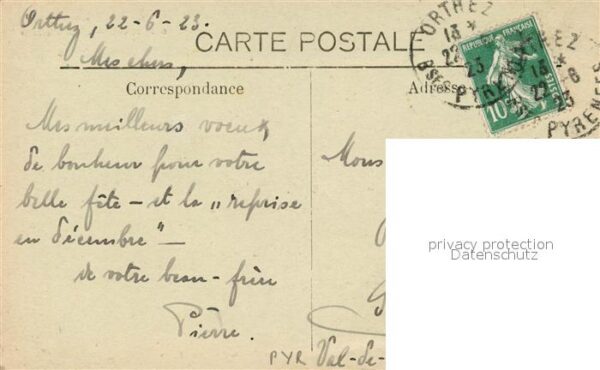 Orthez, 22-6-23.
Mes chers,
CARTE POSTALE
Correspondance
Adresse
ORTHEZ
13 *
22
23
BSES PYRENEES
REPUBLIQUE FRANÇAISE
10
POSTES
13 *
22-6
23
PYRENEES
Mes meilleurs voeux
de bonheur pour votre
belle fête - et la "reprise
en décembre" -
de votre beau-frère
Pierre.
Mons
privacy protection
Datenschutz
PYR Val-de-